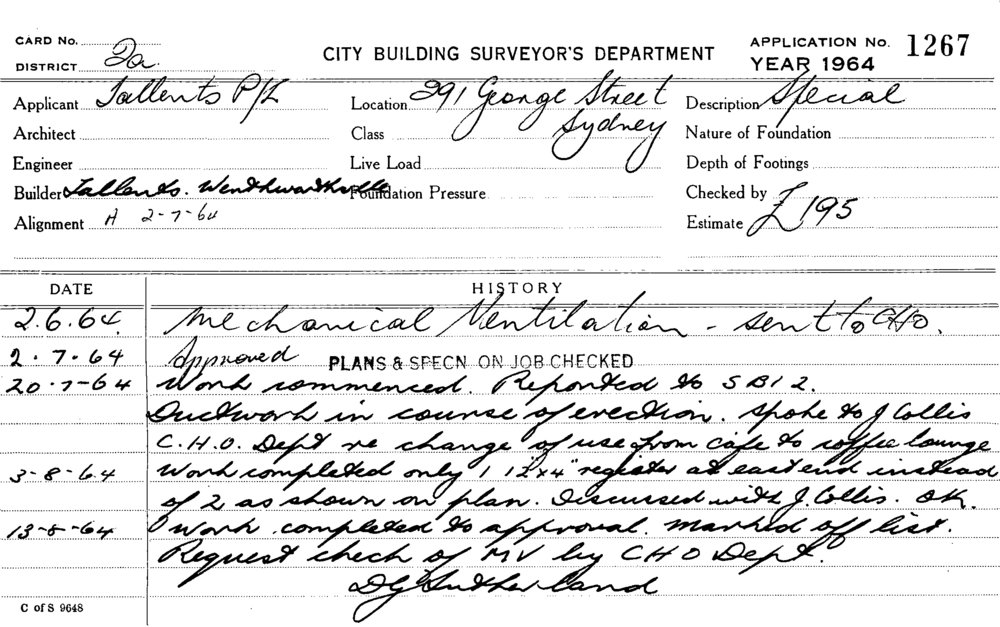 CARD No.
DISTRICT 2a.
CITY BUILDING SURVEYOR'S DEPARTMENT
APPLICATION No. 1267
YEAR 1964
Applicant Tallents P/L
Location 291 George Street
Sydney
Description Special
Architect
Class
Nature of Foundation
Engineer
Live Load
Depth of Footings
Builder Tallents. Wentworthville
Foundation Pressure
Checked by
Alignment A 2-7-64
Estimate £195
DATE HISTORY
2.6.64. Mechanical Ventilation - sent to CHO.
2.7.64 Approved PLANS & SPECN ON JOB CHECKED
20-7-64 Work commenced. Reported to SBI 2.
Ductwork in course of erection. Spoke to J Collis
C.H.O. Dept re change of use from cafe to coffee lounge
3-8-64 Work completed only 1 12"x4" register at east end instead
of 2 as shown on plan. Discussed with J. Collis. OK.
13-8-64 Work completed to approval. Marked off list.
Request check of MV by CHO Dept.
DG Sutherland
C of S 9648